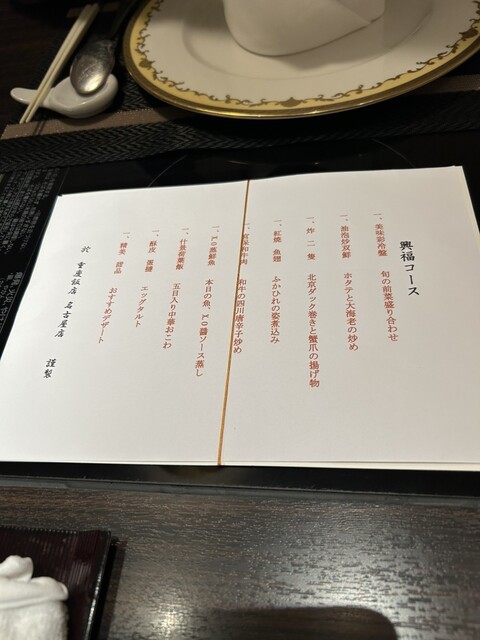 興福コース
一、美味彩冷盤 旬の前菜盛り合わせ
一、油泡炒双鮮 ホタテと大海老の炒め
一、炸二隻 北京ダック巻きと蟹爪の揚げ物
一、紅焼魚翅 ふかひれの姿煮込み
和牛肉 和牛の四川唐辛子炒め
一、XO蒸鮮魚 本日の魚、XO醬ソース蒸し
一、什景荷葉飯 五目入り中華おこわ
一、酥皮蛋撻 エッグタルト
一、精美甜品 おすすめデザート
於 重慶飯店 名古屋店 謹製